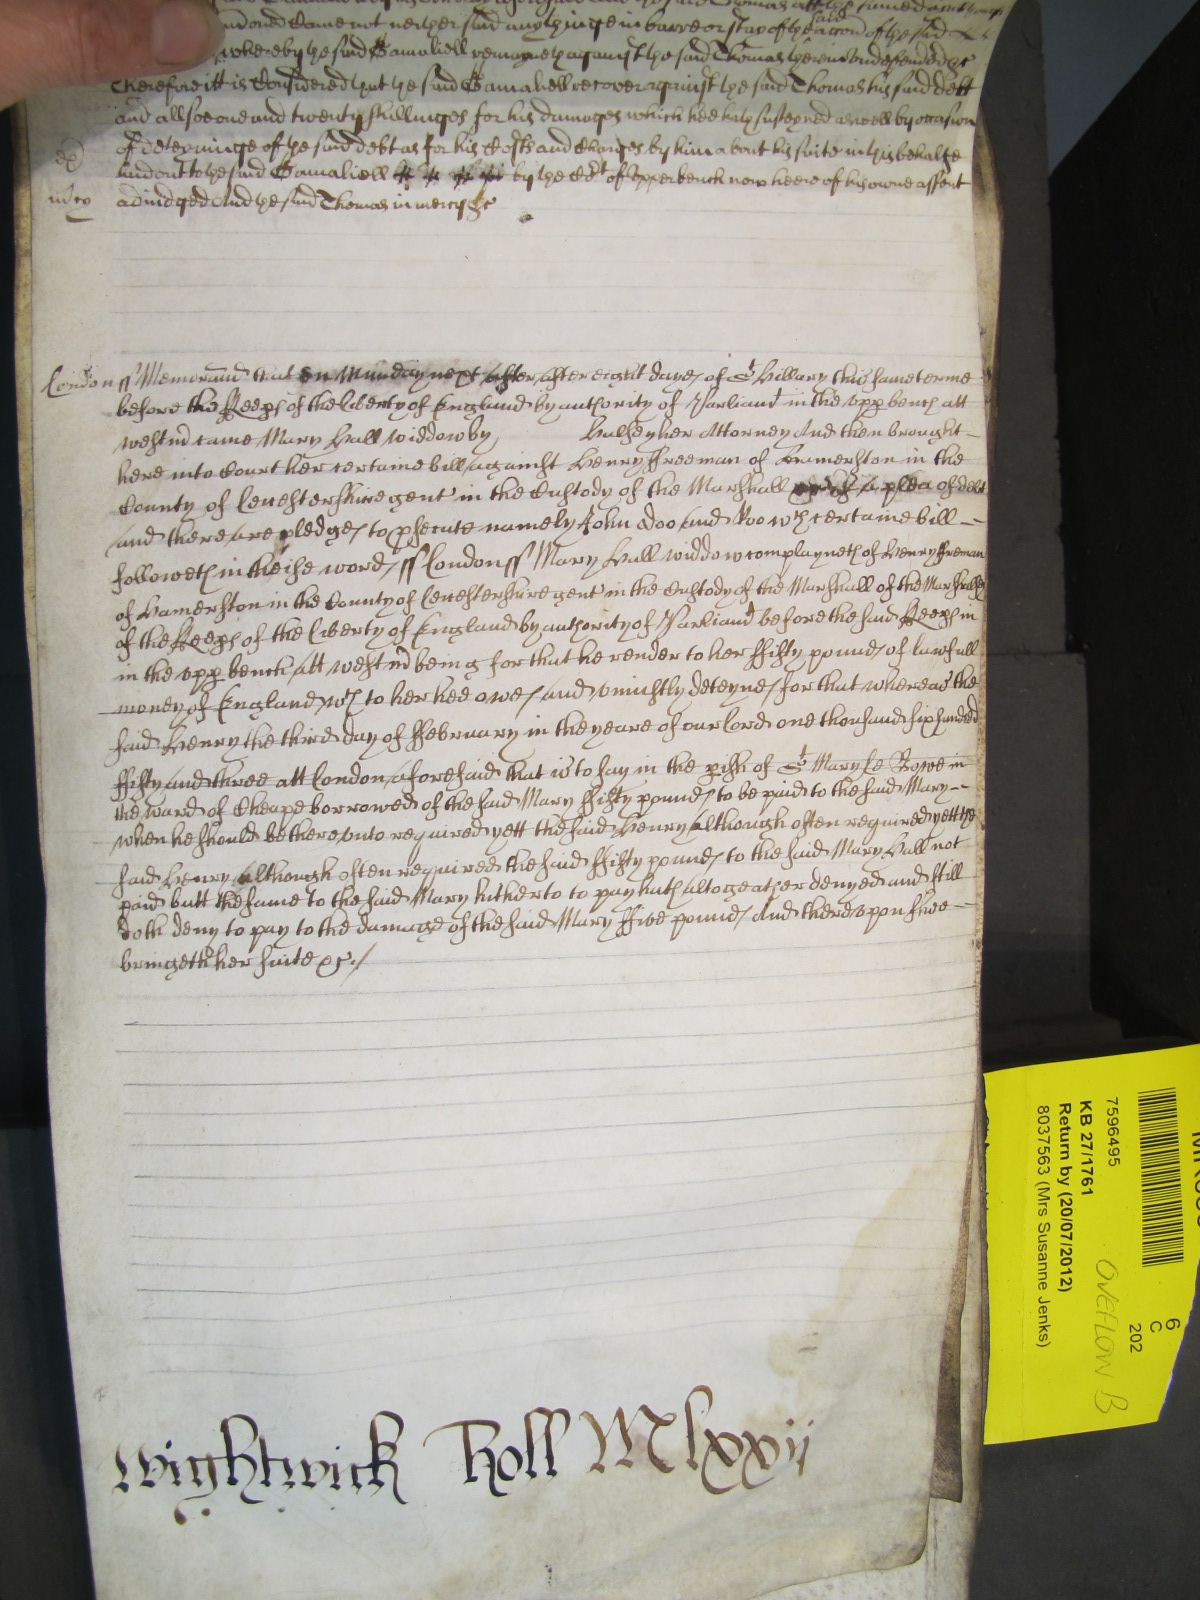 and one Came not neither said any thinge in barre or stay of the said accon of the said
whereby the said Gamaliell remayneth against the said Thomas therein undefended &c
Therefore itt is Considered that the said Gamaliell recover against the said Thomas his said debt
and allsoe one and twenty shillinges for his damages which hee hath susteyned aswell by occasion
of deteyninge of the said debt as for his Costs and Charges by him about his suite in this behalfe
laid out to the said Gamaliell by the Cort of Upperbench now heere of his owne assent
adiudged And the said Thomas in mercy &c
London ss Memorand that on Munday next after after eight dayes of St Hillary this same terme
before the Keeps of the liberty of England by authority of Parliamt in the upp bench att
westmr came Mary Hall widdow by Halsey her Attorney And then brought
here into Court her certaine bill against Henry Freeman of Hamerston in the
County of leicestershire gent in the Custody of the Marshall of a plea of debt
and there are pledges to psecute namely John doo and Roo wch certaine bill
followeth in theise words ss London ss Mary Hall widdow complayneth of Henry ffreeman
of Hamerston in the County of leicestershire gent in the Custody of the Marshall of the Marshalsey
of the Keeps of the liberty of England by authority of Parliamt before the said Keeps in
in the upp bench att westmr being for that he render to her ffifty pounds of lawfull
money of England wch to her hee owes and uniustly deteynes for that whereas the
said Henry the third day of ffebruary in the yeare of our lord one thousand six hundred
ffifty and three att london aforesaid that is to say in the pish of St Mary le Bowe in
the ward of Cheape borrowed of the said Mary ffifty pounds to be paid to the said Mary
when he should be thereunto required yett the said Henry although often required yett the
said Henry although often required the said ffifty pounds to the said Mary Hall not
paid butt the same to the said Mary hitherto to pay hath altogeather denyed and still
doth deny to pay to the damage of the said Mary ffive pounds And thereupon shee
bringeth her suite &c./
Wightwick Roll Mlxxij
6
C
202
7596495
KB 27/1761
Return by (20/07/2012)
8037563 (Mrs Susanne Jenks)
OVERFLOW B